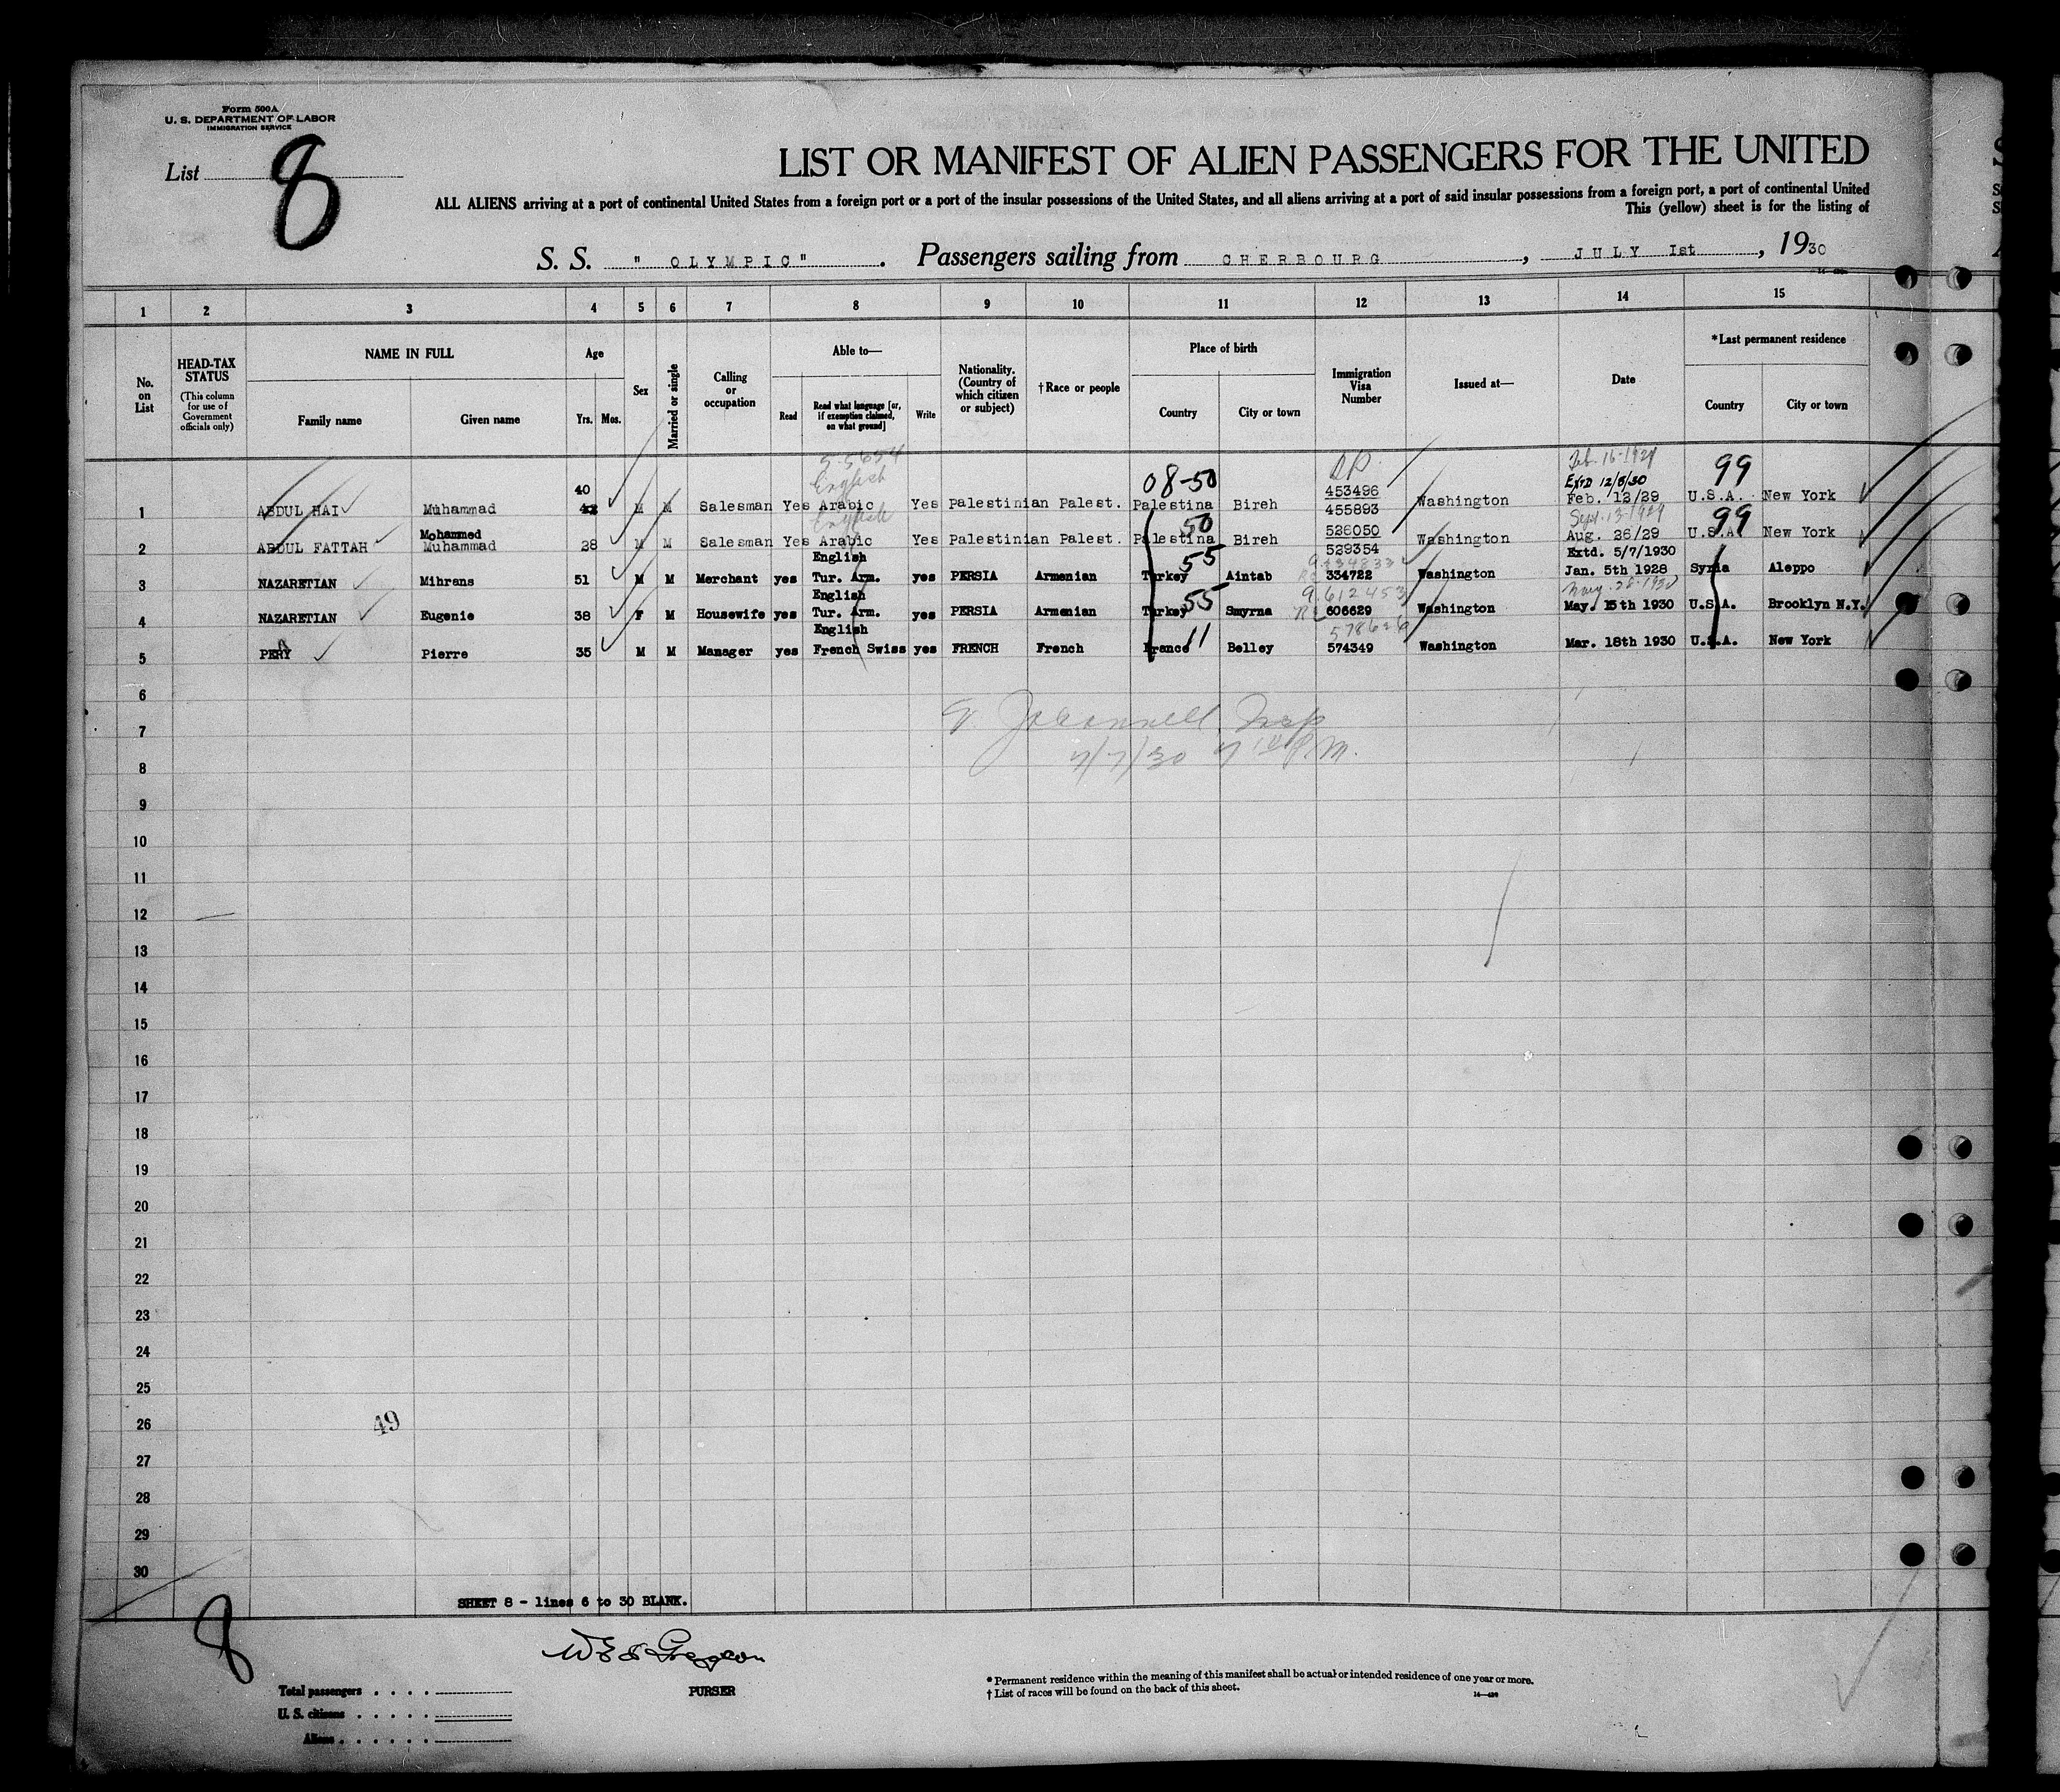 Form 500A
U. S. DEPARTMENT OF LABOR
IMMIGRATION SERVICE
List 8
LIST OR MANIFEST OF ALIEN PASSENGERS FOR THE UNITED
ALL ALIENS arriving at a port of continental United States from a foreign port or a port of the insular possessions of the United States, and all aliens arriving at a port of said insular possessions from a foreign port, a port of continental United
This (yellow) sheet is for the listing of
S. S. " OLYMPIC" . Passengers sailing from CHERBOURG , JULY 1st , 1930
1 2 3 4 5 6 7 8 9 10 11 12 13 14 15
No. on List
HEAD-TAX STATUS (This column for use of Government officials only)
NAME IN FULL
Family name Given name
Age
Yrs. Mos.
Sex
Married or single
Calling or occupation
Able to—
Read Read what language [or, if exemption claimed, on what ground] Write
Nationality. (Country of which citizen or subject)
†Race or people
Place of birth
Country City or town
Immigration Visa Number
Issued at—
Date
*Last permanent residence
Country City or town
English 08-50 Feb. 16-1929 99
40 453496 Extd 12/8/30
1 ABDUL HAI Muhammad 42 M M Salesman Yes Arabic Yes Palestinian Palest. Palestina Bireh 455893 Washington Feb. 12/29 U.S.A. New York
Mohammed English 50 526050 Sept. 13-1929 99
2 ABDUL FATTAH Muhammad 28 M M Salesman Yes Arabic Yes Palestinian Palest. Palestina Bireh 529354 Washington Aug. 26/29 U.S.A. New York
English 55 Extd. 5/7/1930
3 NAZARETIAN Mihrans 51 M M Merchant yes Tur. Arm. yes PERSIA Armenian Turkey Aintab 334722 Washington Jan. 5th 1928 Syria Aleppo
English 55 612453
4 NAZARETIAN Eugenie 38 F M Housewife yes Tur. Arm. yes PERSIA Armenian Turkey Smyrna 606629 Washington May. 15th 1930 U.S.A. Brooklyn N.Y.
English 11
5 PERY Pierre 35 M M Manager yes French Swiss yes FRENCH French France Belley 574349 Washington Mar. 18th 1930 U.S.A. New York
6
7
7/7/30
8
9
10
11
12
13
14
15
16
17
18
19
20
21
22
23
24
25
26
49
27
28
29
30
SHEET 8 - lines 6 to 30 BLANK.
8
PURSER
Total passengers
U. S. citizens
Aliens
* Permanent residence within the meaning of this manifest shall be actual or intended residence of one year or more.
† List of races will be found on the back of this sheet.